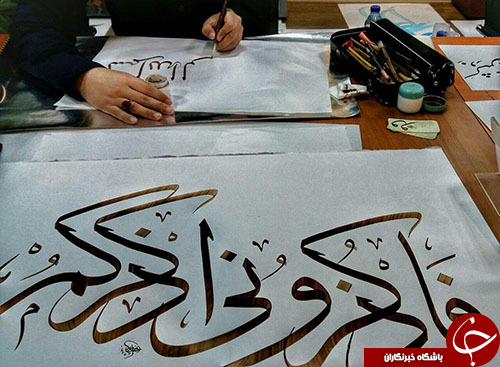 فَاذکرونی اذکرکم
باشگاه خبرنگاران